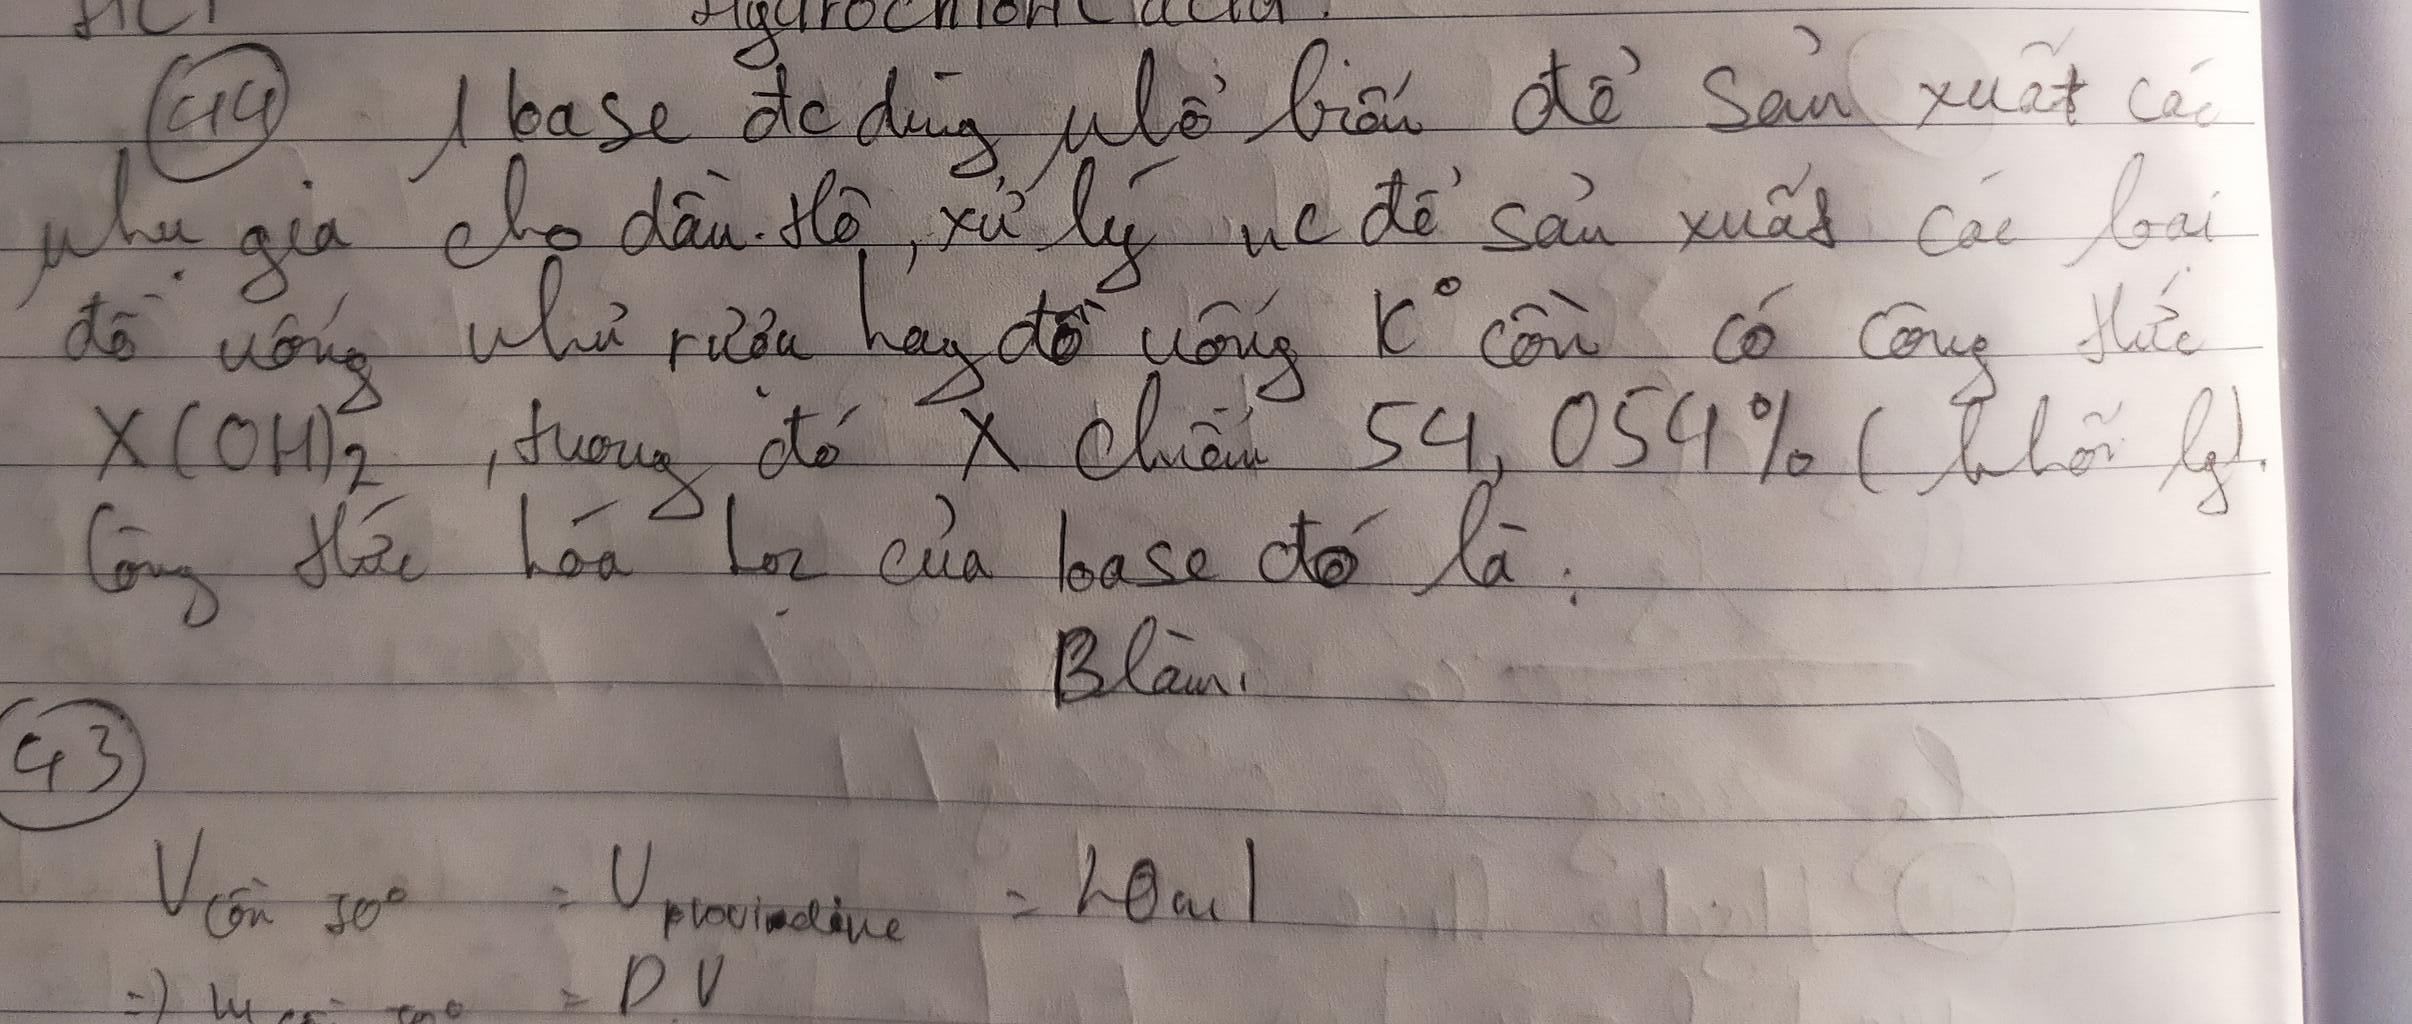 HCl Hydrochloric acid.
44 1 base đc dùng phổ biến để sản xuất các
phụ gia cho dầu thô, xử lý nc để sản xuất các loại
đồ uống như rượu hay đồ uống K° cồn có công thức
X(OH)2, trong đó X chiếm 54,054% (khối lg).
Công thức hóa học của base đó là:
B làm.
43
V cồn 50° = V = 20ml
=) m cồn 50° = D.V